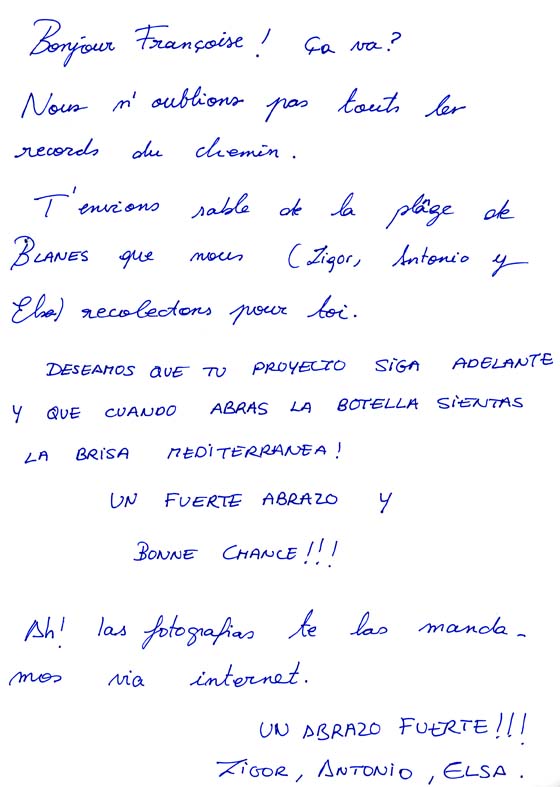 Bonjour Françoise! Ça va?
Nous n'oublions pas touts les
records du chemin.
T'envions sable de la plâge de
BLANES que nous (Zigor, Antonio y
Elsa) recolectons pour toi.
DESEAMOS QUE TU PROYECTO SIGA ADELANTE
Y QUE CUANDO ABRAS LA BOTELLA SIENTAS
LA BRISA MEDITERRANEA!
UN FUERTE ABRAZO Y
BONNE CHANCE!!!
Ah! las fotografias te las manda-
mos via internet.
UN ABRAZO FUERTE!!!
ZIGOR, ANTONIO, ELSA.